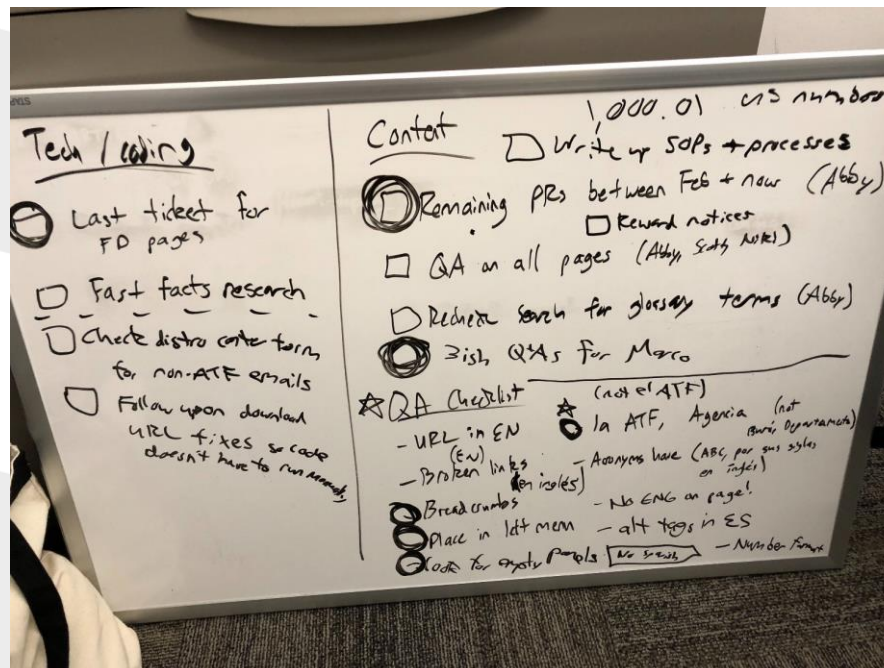 Tech / coding
Last ticket for
FD pages
Fast facts research
Check distro center form
for non-ATF emails
Follow up on download
URL fixes so code
doesn't have to run manually
1,000.01 US number
Content
Write up SOPs + processes
Remaining PRs between Feb + now (Abby)
Reward notices
QA on all pages (Abby, Scott,
search for glossary terms (Abby)
Bish Q+As for Marco
QA Checklist
- URL in EN
(EN)
- Broken links
(en inglés)
- Breadcrumbs
- Place in left menu
- Code for empty panels
No Spanish
(not el ATF)
la ATF, Agencia (not
Buró, Departamento)
- Acronyms have (ABC, por sus siglas
en inglés)
- No ENG on page!
- alt tags in ES
- Number format